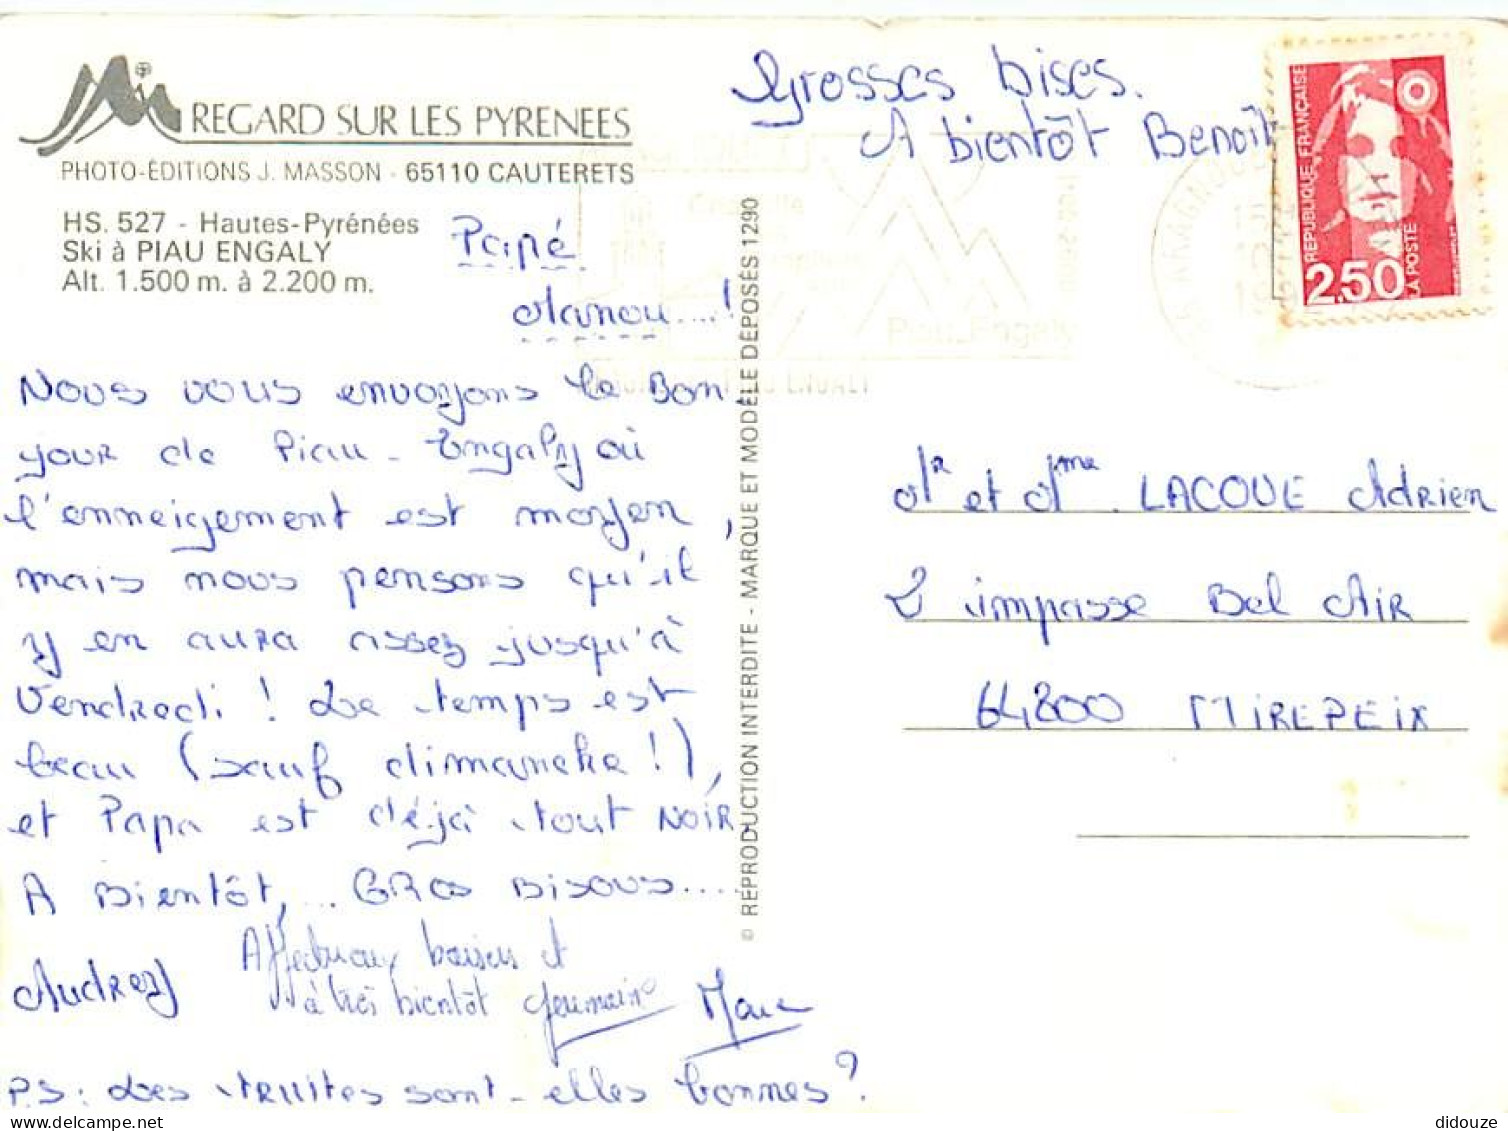 REGARD SUR LES PYRENEES
PHOTO-ÉDITIONS J. MASSON - 65110 CAUTERETS
HS. 527 - Hautes-Pyrénées
Ski à PIAU ENGALY
Alt. 1.500 m. à 2.200 m.
Grosses bises.
A bientôt Benoît
RÉPUBLIQUE FRANÇAISE
LA POSTE
2,50
Piau Engaly
Papé
Manou....!
Nous vous envoyons le Bon
jour de Piau-Engaly où
l'enneigement est moyen,
mais nous pensons qu'il
y en aura assez jusqu'à
Vendredi ! Le temps est
beau (sauf dimanche !),
et Papa est déjà tout NOIR.
A Bientôt, .. GROS BISOUS....
Audrey
Affectueux baisers et
à très bientôt Germaine
Marc
P.S : Les truites sont-elles bonnes ?
© REPRODUCTION INTERDITE - MARQUE ET MODÈLE DÉPOSÉS 1290
Mr et Mme LACOUE Adrien
2 impasse Bel Air
64800 MIREPEIX
didouze